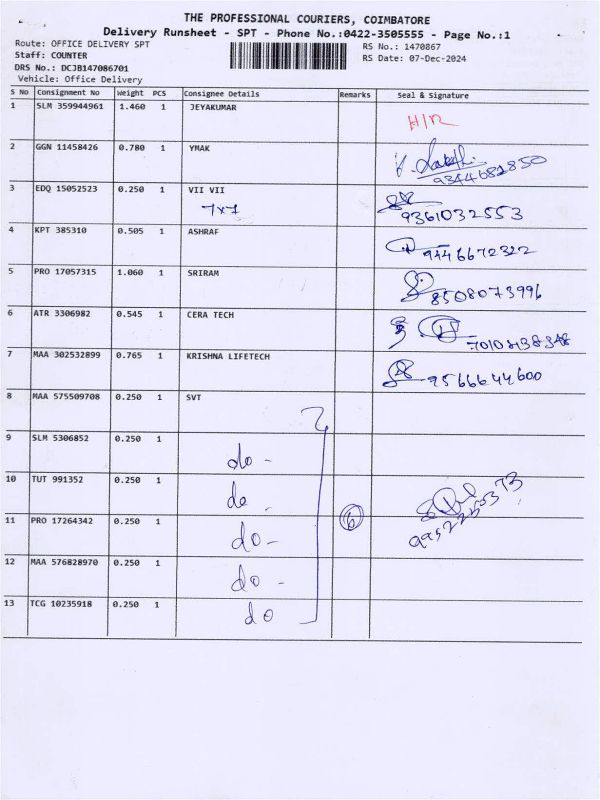 THE PROFESSIONAL COURIERS, COIMBATORE
Delivery Runsheet - SPT - Phone No.:0422-3505555 - Page No.:1
Route: OFFICE DELIVERY SPT RS No.: 1470867
Staff: COUNTER RS Date: 07-Dec-2024
DRS No.: DCJB147086701
Vehicle: Office Delivery
S No Consignment No Weight PCS Consignee Details Remarks Seal & Signature
1 SLM 359944961 1.460 1 JEYAKUMAR H/R
2 GGN 11458426 0.780 1 YMAK
9344682850
3 EDQ 15052523 0.250 1 VII VII
7x7 9361032553
4 KPT 385310 0.505 1 ASHRAF
9446672322
5 PRO 17057315 1.060 1 SRIRAM
8508073996
6 ATR 3306982 0.545 1 CERA TECH
7 MAA 302532899 0.765 1 KRISHNA LIFETECH
9566644600
8 MAA 575509708 0.250 1 SVT
9 SLM 5306852 0.250 1
do -
10 TUT 991352 0.250 1
do
11 PRO 17264342 0.250 1 6
do -
12 MAA 576828970 0.250 1
do -
13 TCG 10235918 0.250 1
do